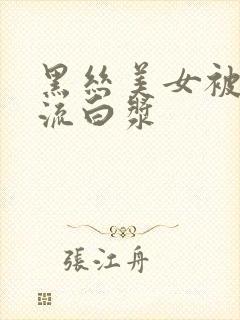 黑絲美女被
流白漿
張江舟